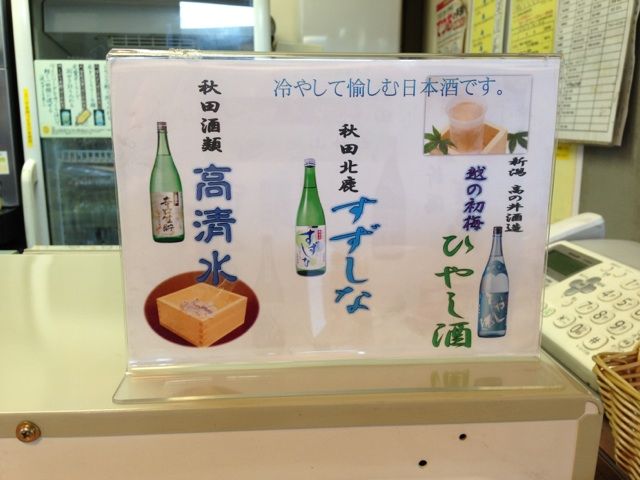 冷やして愉しむ日本酒です。
秋田酒類
高清水
秋田北鹿
すずしな
すずしな
新潟 高の井酒造
越の初梅
ひやし酒